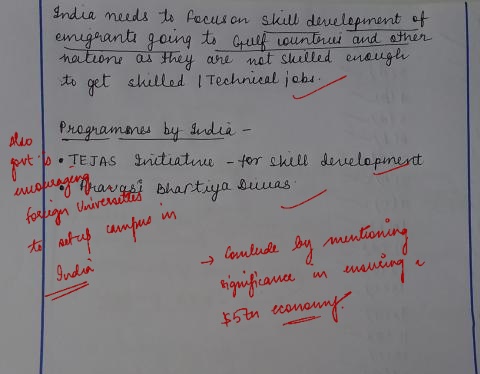 India needs to focus on skill development of
emigrants going to Gulf countries and other
nations as they are not skilled enough
to get skilled / Technical jobs.
Programmes by India -
• TEJAS Initiative - for skill development
• Pravasi Bhartiya Divas
also
govt is
encouraging
foreign Universities
to setup campus in
India
→ Conclude by mentioning
significance in ensuring
$5tn economy.